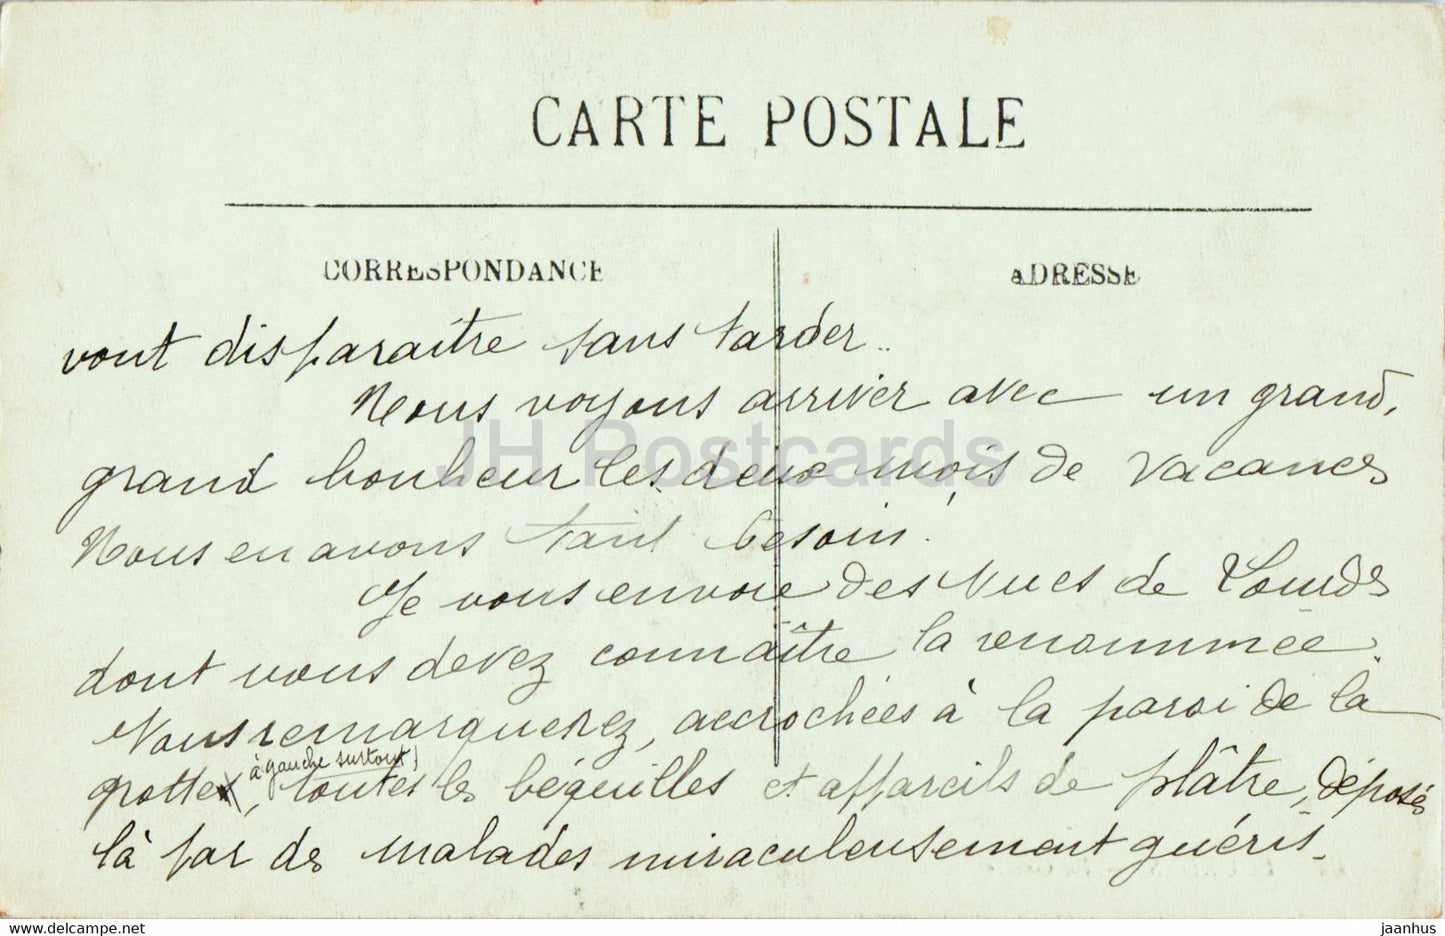 CARTE POSTALE
CORRESPONDANCE
ADRESSE
vont disparaître sans tarder..
Nous voyons arriver avec un grand,
grand bonheur les deux mois de vacances
Nous en avons tant besoin.
Je vous envoie des vues de Lourdes
dont vous devez connaître la renommée.
Vous remarquerez, accrochées à la paroi de la
grotte (à gauche surtout), toutes les béquilles et appareils de plâtre, déposés
là par des malades miraculeusement guéris.
JH Postcards
www.hippostcard.com
jaanhus